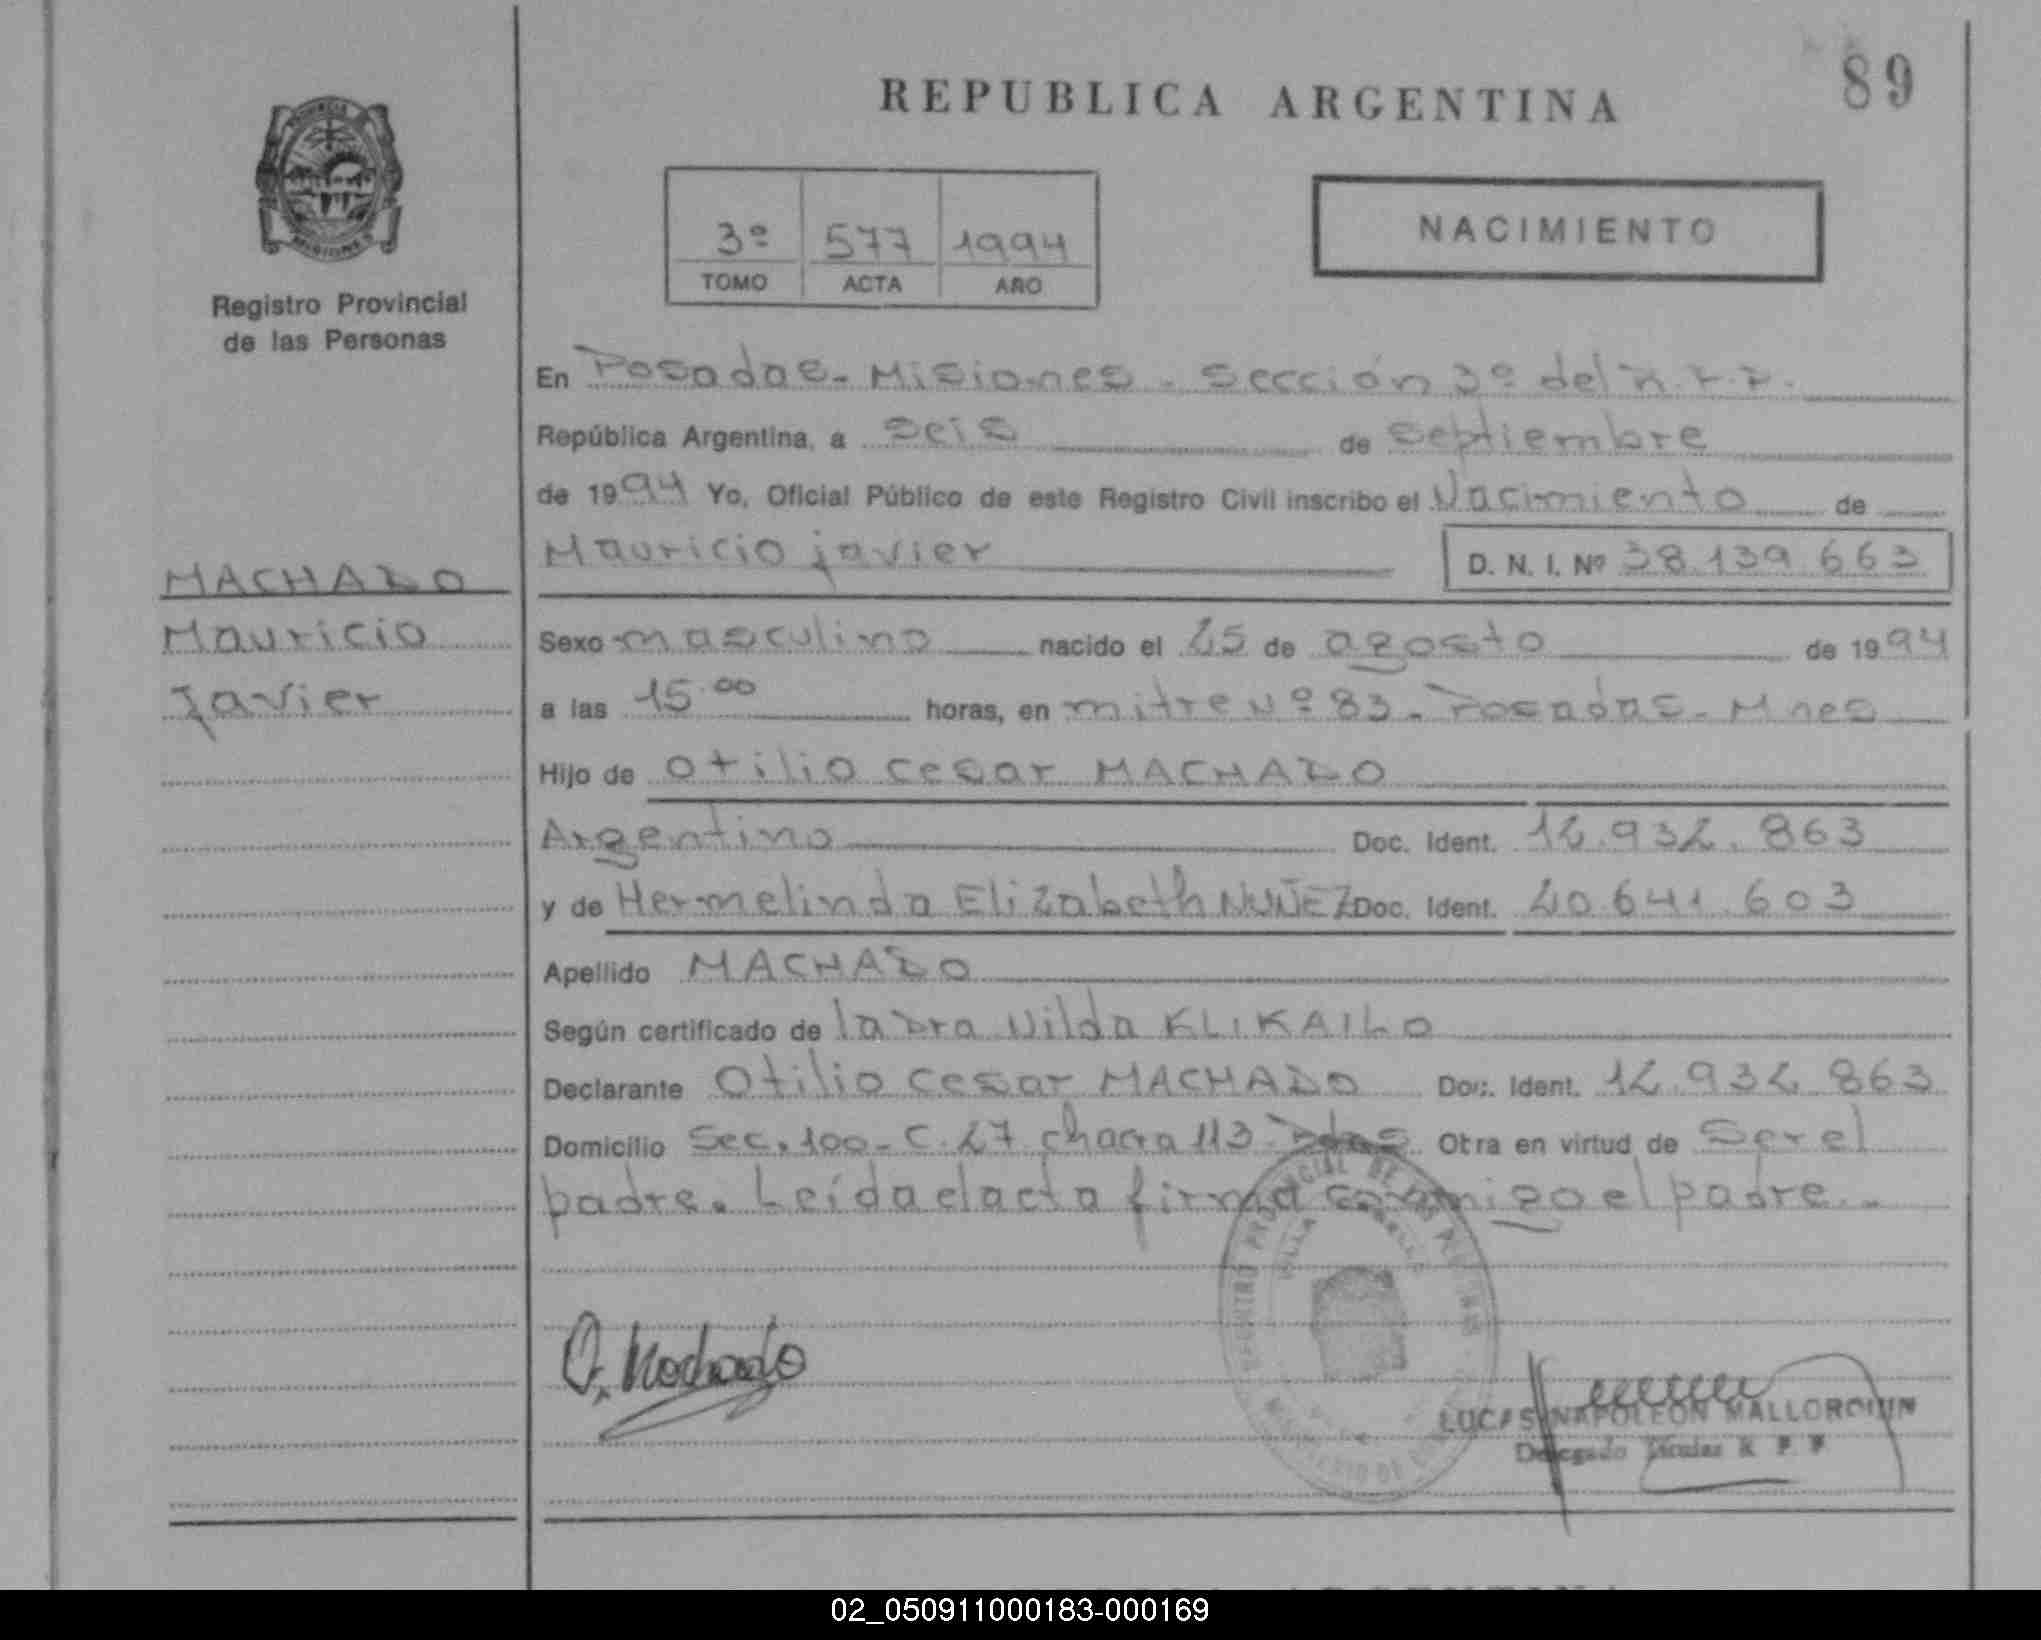 89
REPUBLICA ARGENTINA
NACIMIENTO
3º 577 1994
TOMO ACTA AÑO
Registro Provincial
de las Personas
En Posadas - Misiones - Sección 3º del R.P.P.
República Argentina, a seis de septiembre
de 1994 Yo, Oficial Público de este Registro Civil inscribo el Nacimiento de
Mauricio javier D. N. I. Nº 38.139.663
MACHADO
Mauricio
Javier
Sexo masculino nacido el 25 de agosto de 1994
a las 15.00 horas, en mitre Nº 83 - Posadas - Mnes
Hijo de Otilio cesar MACHADO
Argentino Doc. Ident. 12.932.863
y de Hermelinda Elizabeth NUÑEZ Doc. Ident. 20.641.603
Apellido MACHADO
Según certificado de la Dra Nilda KLIKAILO
Declarante Otilio cesar MACHADO Doc. Ident. 12.932.863
Domicilio Sec. 100 - C. 27 chacra 113 - Pdas Otra en virtud de Ser el
padre. Leída el acta firma conmigo el padre. -
REGISTRO PROVINCIAL DE LAS PERSONAS
VILLA
MINISTERIO DE
O. Machado
LUCAS NAPOLEON MALLORQUIN
Delegado Titular R. P. P.
02_050911000183-000169